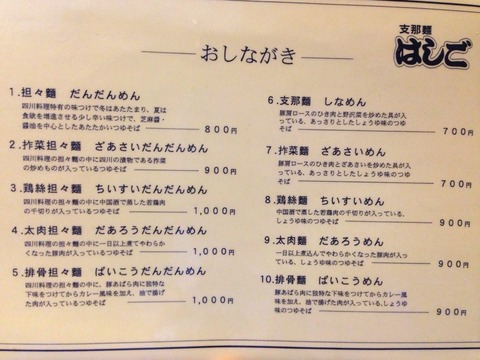 おしながき
支那麵
はしご
1.担々麵 だんだんめん
四川料理特有の味つけで冬はあたたまり、夏は
食欲を増進させる少し辛い味つけで、芝麻醬・
醬油を中心としたあたたかいつゆそば
800円
2.搾菜担々麵 ざあさいだんだんめん
四川料理の担々麵の中に四川の漬物である搾菜
の炒めものが入っているつゆそば
900円
3.鶏絲担々麵 ちいすいだんだんめん
四川料理の担々麵の中に中国酒で蒸した若鶏肉
の千切りが入っているつゆそば
1,000円
4.太肉担々麵 だあろうだんだんめん
四川料理の担々麵の中に一日以上煮てやわらか
くなった豚肉が入っているつゆそば
1,000円
5.排骨担々麵 ぱいこうだんだんめん
四川料理の担々麵の中に、豚あばら肉に独特な
下味をつけてからカレー風味を加え、油で揚げ
た肉が入っているつゆそば
1,000円
6.支那麵 しなめん
豚肩ロースのひき肉と野沢菜を炒めた具が入
っている、あっさりとしたしょうゆ味のつゆ
そば
700円
7.搾菜麵 ざあさいめん
豚肩ロースのひき肉とざあさいを炒めた具が入
っている、あっさりとしたしょうゆ味のつゆ
そば
700円
8.鶏絲麵 ちいすいめん
中国酒で蒸した若鶏肉の千切りが入っている、
しょうゆ味のつゆそば
900円
9.太肉麵 だあろうめん
一日以上煮込んでやわらかくなった豚肉が入っ
ている、しょうゆ味のつゆそば
900円
10.排骨麵 ぱいこうめん
豚あばら肉に独特な下味をつけてからカレー風
味を加え、油で揚げた肉が入っている、しょうゆ
味のつゆそば
900円